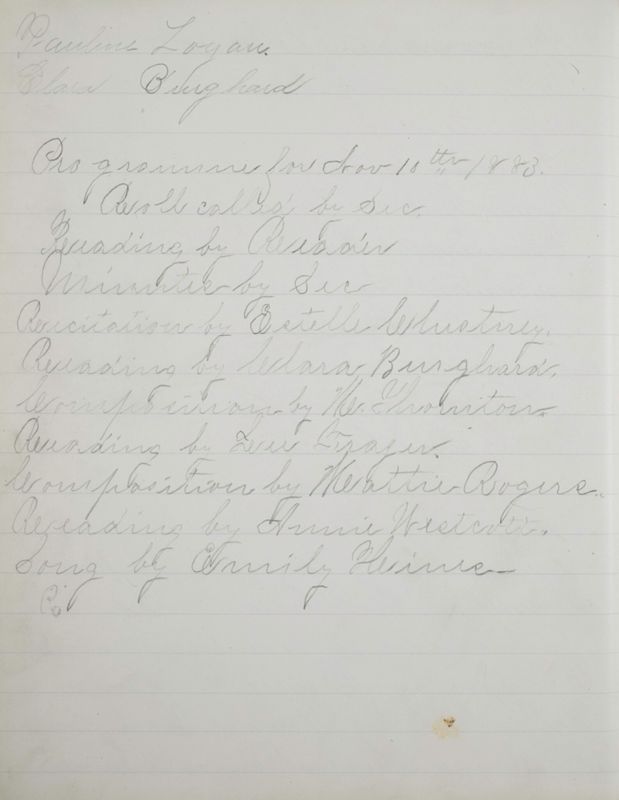 Pauline Logan.
Clara Burghard
Programme for Nov 10th 1883.
Roll called by Sec.
Reading by Reader
Minutes by Sec
Recitation by Estelle
Reading by Clara Burghard.
Composition by M. Thornton.
Reading by
Composition by Mattie Rogers.
Reading by Annie Westcott.
Song by Emily Heines